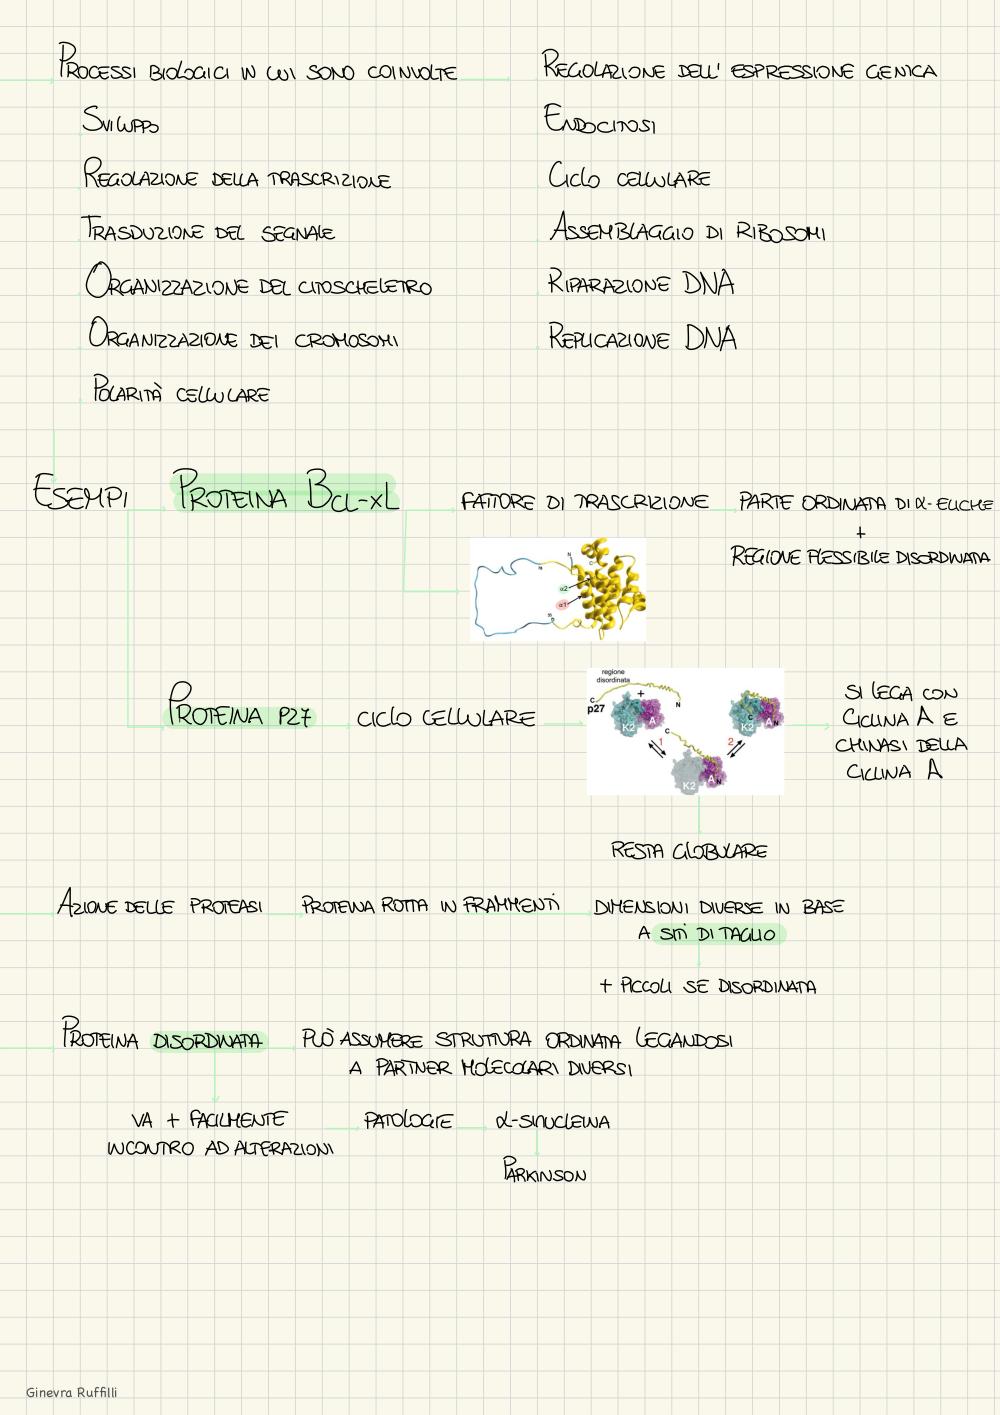 PROCESSI BIOLOGICI IN CUI SONO COINVOLTE
SVILUPPO
REGOLAZIONE DELLA TRASCRIZIONE
TRASDUZIONE DEL SEGNALE
ORGANIZZAZIONE DEL CITOSCHELETRO
ORGANIZZAZIONE DEI CROMOSOMI
POLARITÀ CELLULARE
REGOLAZIONE DELL' ESPRESSIONE GENICA
ENDOCITOSI
CICLO CELLULARE
ASSEMBLAGGIO DI RIBOSOMI
RIPARAZIONE DNA
REPLICAZIONE DNA
ESEMPI
PROTEINA BCL-XL
FATTORE DI TRASCRIZIONE
PARTE ORDINATA DI α-ELICHE
+
REGIONE FLESSIBILE DISORDINATA
N
C
α2
α1
PROTEINA P27
CICLO CELLULARE
regione
disordinata
C
+
p27
N
K2
A
C
1
2
K2
A
N
K2
C
A
N
SI LEGA CON
CICLINA A E
CHINASI DELLA
CICLINA A
RESTA GLOBULARE
AZIONE DELLE PROTEASI
PROTEINA ROTTA IN FRAMMENTI
DIMENSIONI DIVERSE IN BASE
A SITI DI TAGLIO
+ PICCOLI SE DISORDINATA
PROTEINA DISORDINATA
PUÒ ASSUMERE STRUTTURA ORDINATA LEGANDOSI
A PARTNER MOLECOLARI DIVERSI
VA + FACILMENTE
INCONTRO AD ALTERAZIONI
PATOLOGIE
α-SINUCLEINA
PARKINSON
Ginevra Ruffilli